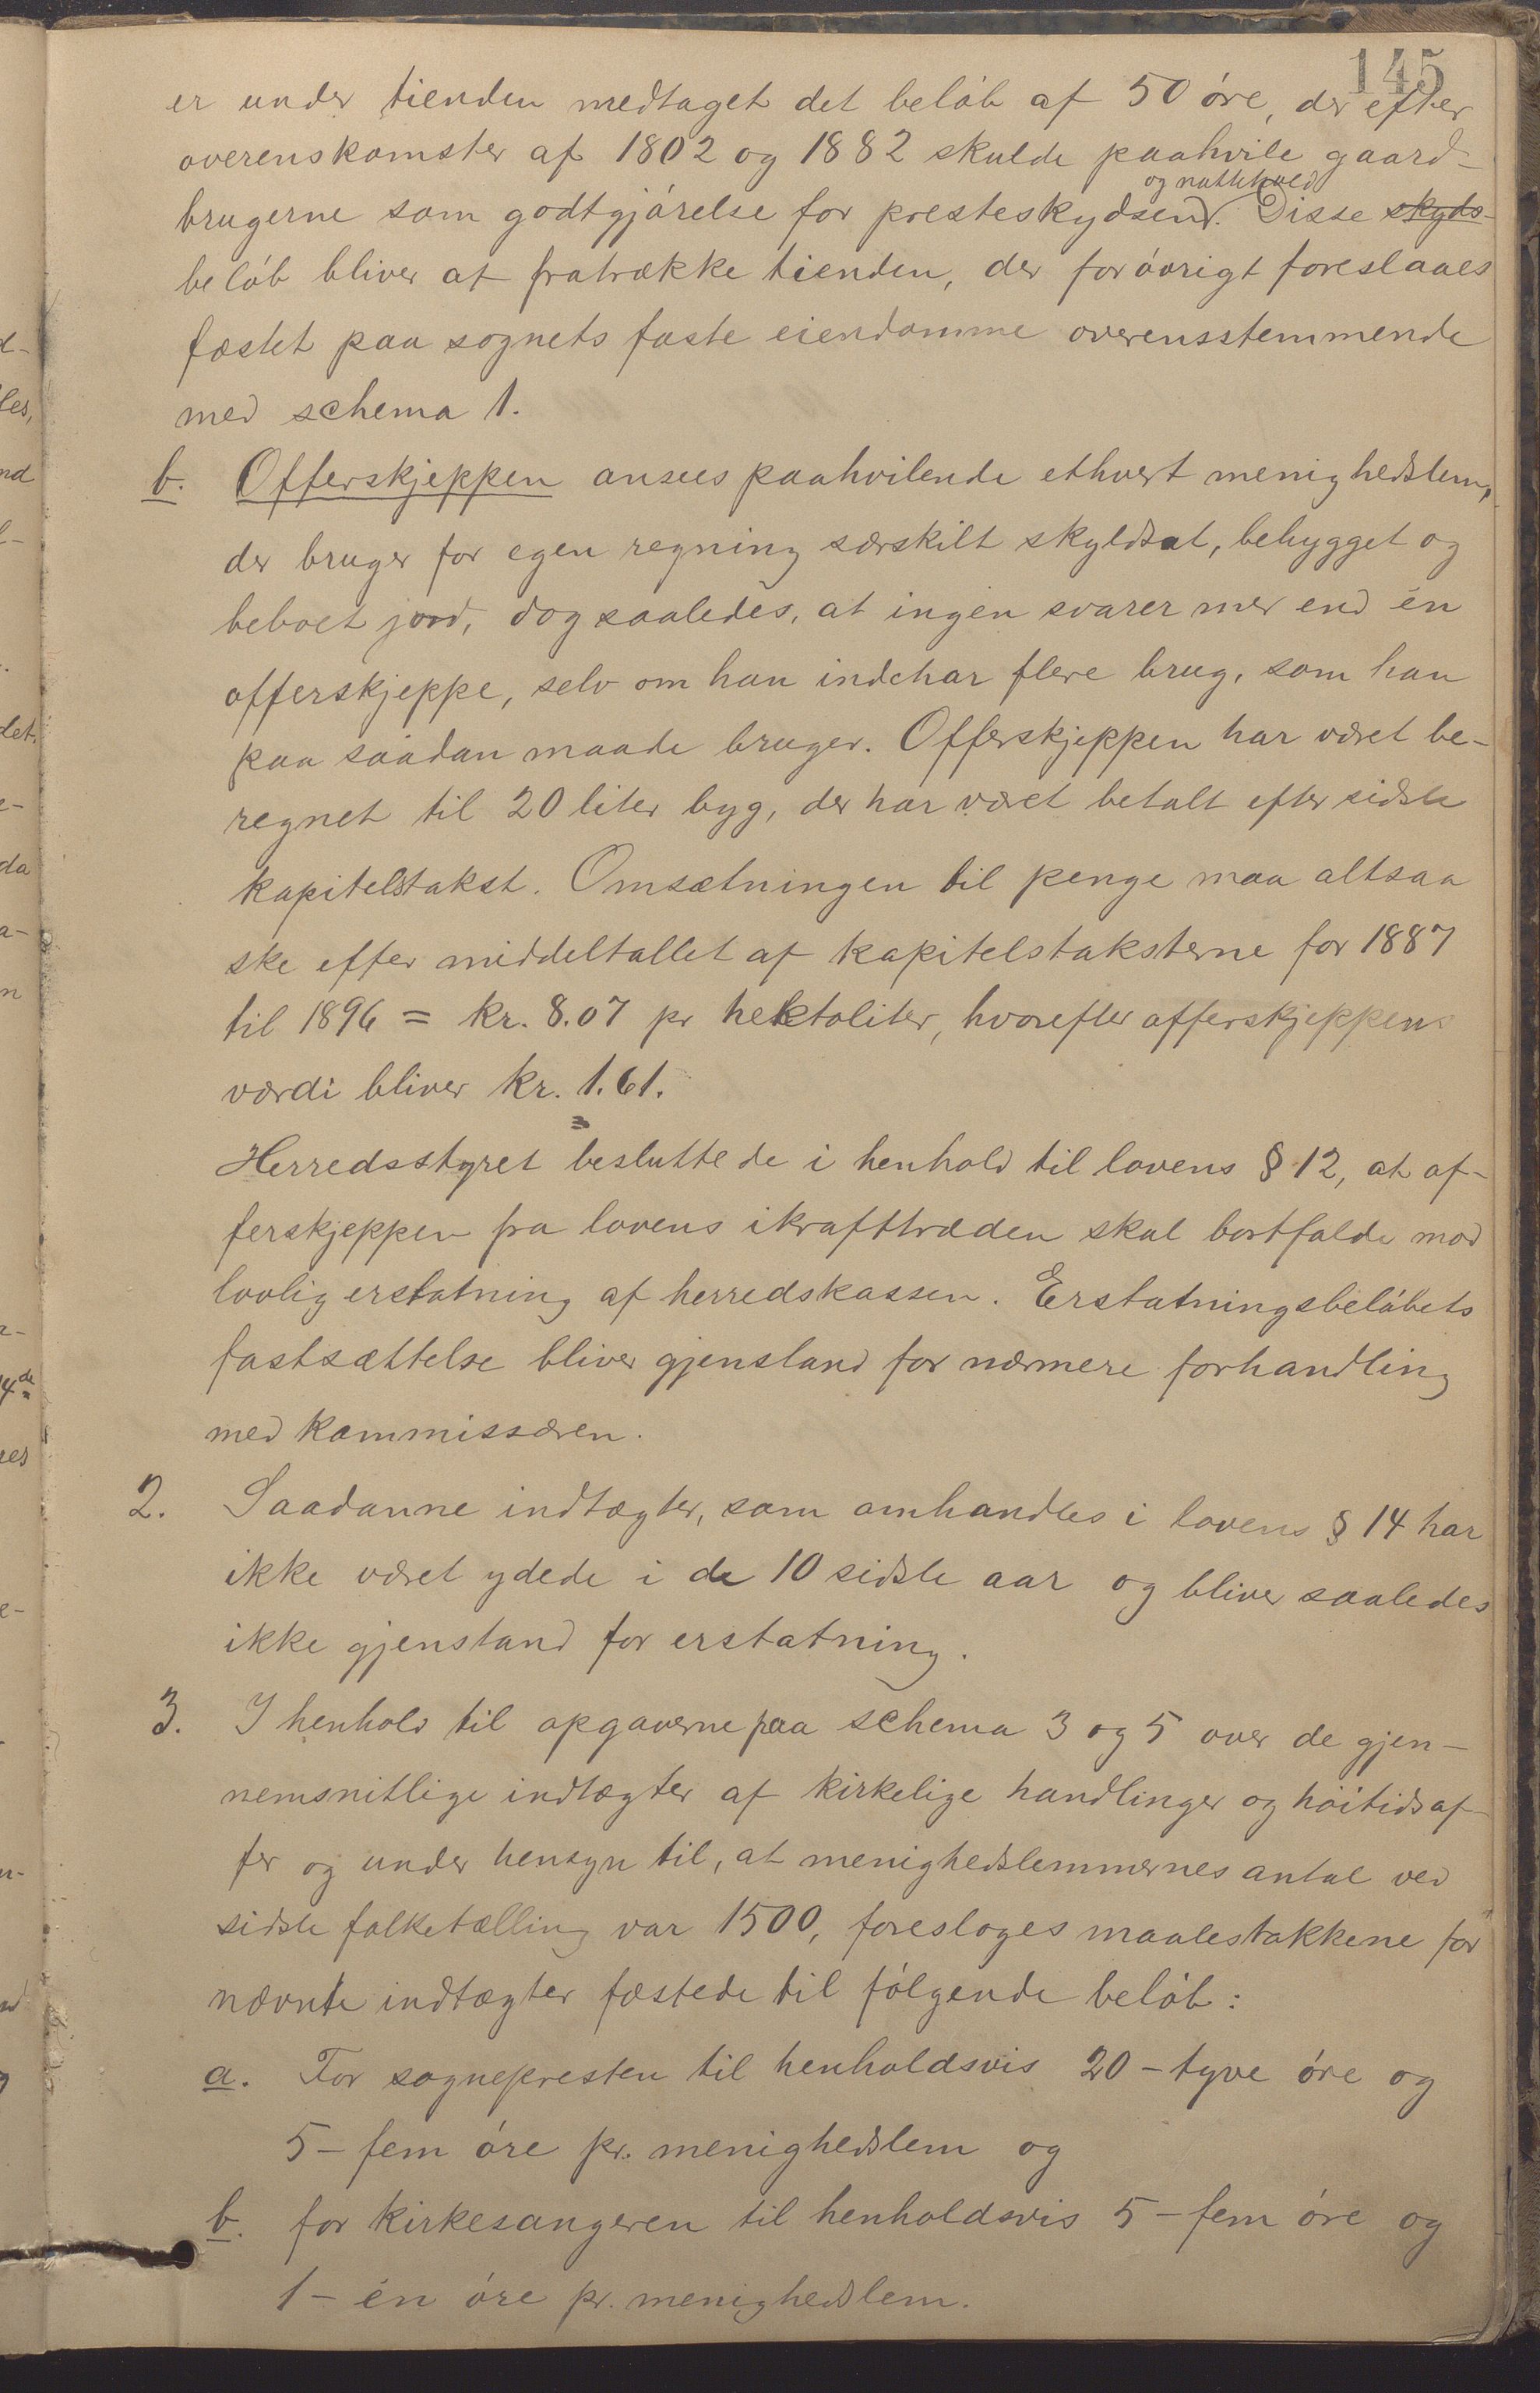 145
er under tienden medtaget det beløb af 50 øre, der efter
overenskomster af 1802 og 1882 skulde paahvile gaard-
og nattehold
brugerne som godtgjørelse for presteskydsen. Disse skyds-
beløb bliver at fratrække tienden, der forøvrigt foreslaaes
fæstet paa sognets faste eiendomme overensstemmende
med schema 1.
b. Offerskjeppen ansees paahvilende ethvert menighedslem,
der bruger for egen regning særskilt skyldsat, bebygget og
beboet jord, dog saaledes, at ingen svarer mer end én
offerskjeppe, selv om han indehar flere brug, som han
paa saadan maade bruger. Offerskjeppen har været be-
regnet til 20 liter byg, der har været betalt efter sidste
kapitelstakst. Omsætningen til penge maa altsaa
ske efter middeltallet af kapitelstaksterne for 1887
til 1896 = kr. 8.07 pr hektoliter, hvorefter offerskjeppens
værdi bliver kr. 1.61.
Herredsstyret besluttede i henhold til lovens § 12, at of-
ferskjeppen fra lovens ikrafttræden skal bortfalde mod
lovlig erstatning af herredskassen. Erstatningsbeløbets
fastsættelse bliver gjenstand for nærmere forhandling
med kommissæren.
2. Saadanne indtægter, som omhandles i lovens § 14 har
ikke været ydede i de 10 sidste aar og bliver saaledes
ikke gjenstand for erstatning.
3. I henhold til opgaverne paa schema 3 og 5 over de gjen-
nemsnitlige indtægter af kirkelige handlinger og høitidsof-
fer og under hensyn til, at menighedslemmernes antal ved
sidste folketælling var 1500, foresloges maalestokkene for
nævnte indtægter fæstede til følgende beløb:
a. For sognepresten til henholdsvis 20 - tyve øre og
5 - fem øre pr. menighedslem og
b. for kirkesangeren til henholdsvis 5 - fem øre og
1 - én øre pr. menighedslem.